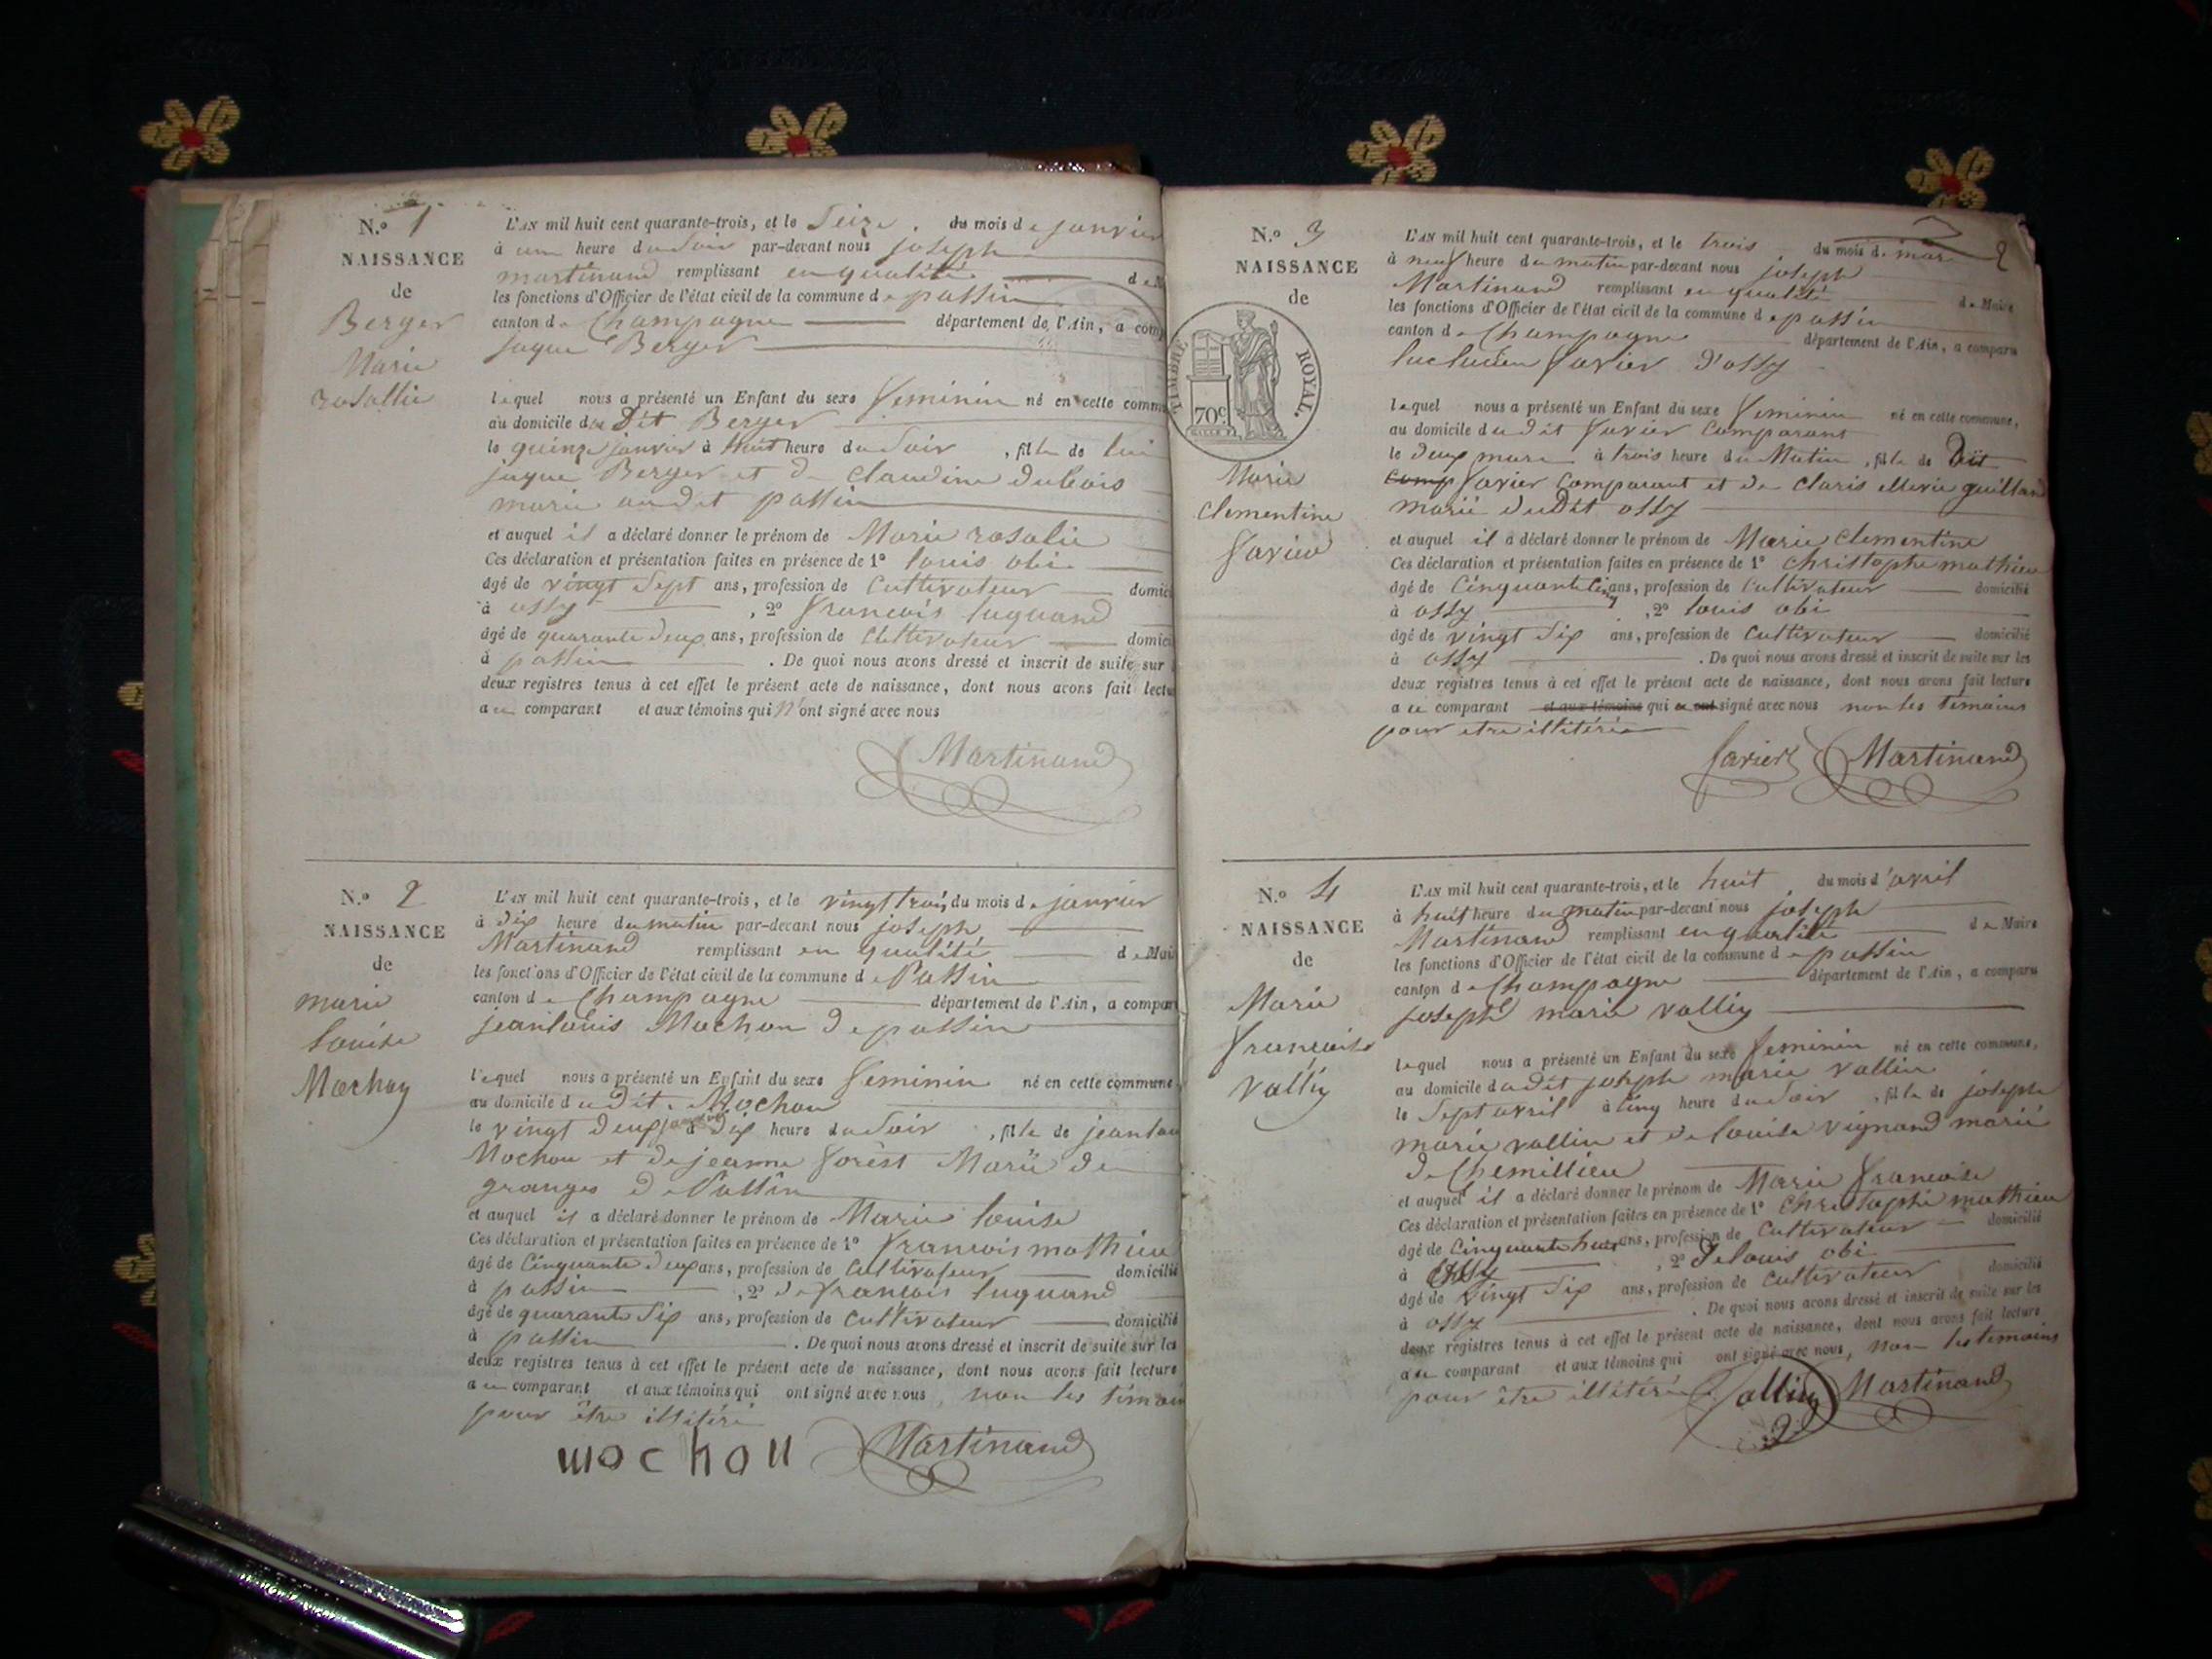 N.º 1
NAISSANCE
de
Berger
Marie
rosallie
L'AN mil huit cent quarante-trois, et le Seize du mois de janvier
à une heure du Soir par-devant nous joseph
martinand remplissant en qualité de
les fonctions d'Officier de l'état civil de la commune de passin
canton de Champagne département de l'Ain, a comp
juque Berger
lequel nous a présenté un Enfant du sexe feminin né en cette commu
au domicile du Dit Berger
le quinze janvier à huit heure du Soir , fille de lui
juque Berger et de Claudine dubois
marié au dit passin
et auquel il a déclaré donner le prénom de Marie rosalie
Ces déclaration et présentation faites en présence de 1º louis obi
âgé de vingt Sept ans, profession de Cultivateur domici
à ossy , 2º francois luquand
âgé de quarante deux ans, profession de Cultivateur domici
à passin . De quoi nous avons dressé et inscrit de suite sur
deux registres tenus à cet effet le présent acte de naissance, dont nous avons fait lectu
au comparant et aux témoins qui n'ont signé avec nous
Martinand
N.º 2
NAISSANCE
de
marie
louise
Mochon
L'AN mil huit cent quarante-trois, et le vingt trois du mois de janvier
à dix heure du matin par-devant nous joseph
Martinand remplissant en qualité de Mai
les fonctions d'Officier de l'état civil de la commune de Passin
canton de Champagne département de l'Ain, a compar
jeanlouis Mochon de passin
lequel nous a présenté un Enfant du sexe feminin né en cette commune
au domicile du dit Mochon
le vingt deux janvier à dix heure du Soir , fille de jeanlou
Mochon et de jeanne forest Marié de
granges de Passin
et auquel il a déclaré donner le prénom de Marie louise
Ces déclaration et présentation faites en présence de 1º francois mathieu
âgé de Cinquante deux ans, profession de Cultivateur domicilié
à passin , 2º de francois luquand
âgé de quarante Six ans, profession de Cultivateur domicilié
à passin . De quoi nous avons dressé et inscrit de suite sur les
deux registres tenus à cet effet le présent acte de naissance, dont nous avons fait lecture
au comparant et aux témoins qui ont signé avec nous, non les témoin
pour être illitéré
mochon Martinand
2
N.º 3
NAISSANCE
de
TIMBRE ROYAL.
70c
Marie
Clementine
Savier
L'AN mil huit cent quarante-trois, et le trois du mois de mars
à neuf heure du matin par-devant nous joseph
Martinand remplissant en qualité de Maire
les fonctions d'Officier de l'état civil de la commune de passin
canton de Champagne département de l'Ain, a comparu
luc lucien Savier d'ossy
lequel nous a présenté un Enfant du sexe feminin né en cette commune,
au domicile du dit Savier Comparant
le deux mars à trois heure du Matin , fille de Dit
comp Savier Comparant et de Claris guilland
marié du Dit ossy
et auquel il a déclaré donner le prénom de Marie Clementine
Ces déclaration et présentation faites en présence de 1º Christophe mathieu
âgé de Cinquante Cinq ans, profession de Cultivateur domicilié
à ossy , 2º louis obi
âgé de vingt Six ans, profession de Cultivateur domicilié
à ossy . De quoi nous avons dressé et inscrit de suite sur les
deux registres tenus à cet effet le présent acte de naissance, dont nous avons fait lecture
au comparant et aux témoins qui ont signé avec nous non les témoins
pour etre illitéré
Savier Martinand
N.º 4
NAISSANCE
de
Marie
francoise
vallin
L'AN mil huit cent quarante-trois, et le huit du mois d'avril
à huit heure du matin par-devant nous joseph
Martinand remplissant en qualité de Maire
les fonctions d'Officier de l'état civil de la commune de passin
canton de Champagne département de l'Ain, a comparu
joseph marie vallin
lequel nous a présenté un Enfant du sexe feminin né en cette commune,
au domicile du dit joseph marie vallin
le Sept avril à cinq heure du Soir , fille de joseph
marie vallin et de louise vignand marié
de Chemillieu
et auquel il a déclaré donner le prénom de Marie francoise
Ces déclaration et présentation faites en présence de 1º Christophe mathieu
âgé de Cinquante huit ans, profession de Cultivateur domicilié
à ossy , 2º de louis obi
âgé de vingt Six ans, profession de Cultivateur domicilié
à ossy . De quoi nous avons dressé et inscrit de suite sur les
deux registres tenus à cet effet le présent acte de naissance, dont nous avons fait lecture
au comparant et aux témoins qui ont signé avec nous, non les témoins
pour être illitéré
Vallin Martinand